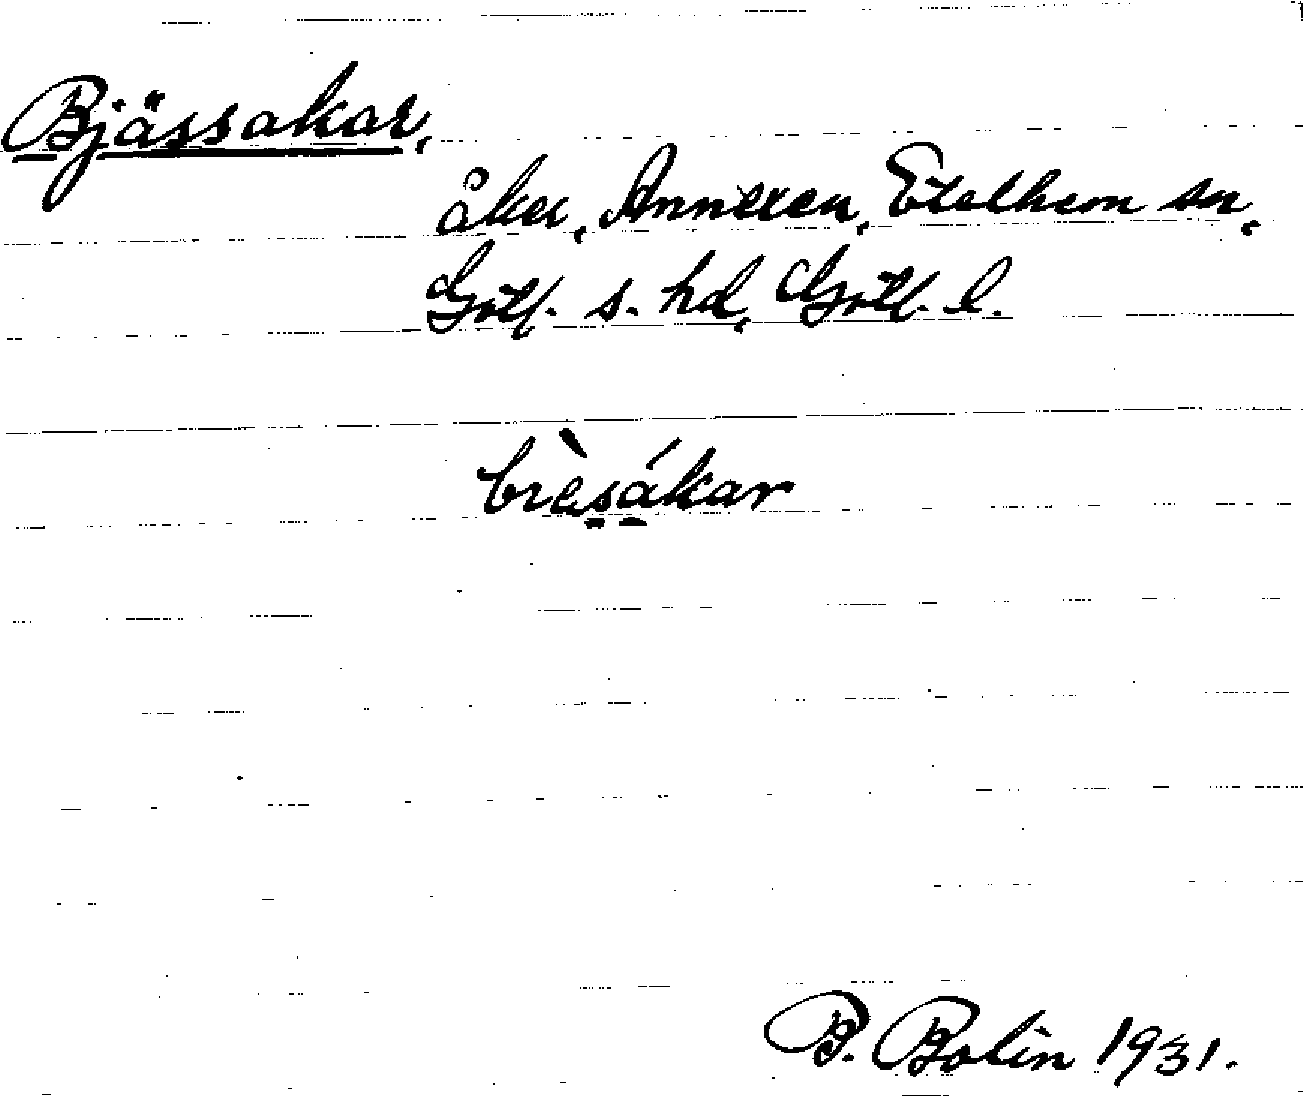 Bjässakar,
åker, Annexen, Etelhem sn,
Gotl. s. hd, Gotl. l.
bìe̱s̱áḵar
B. Bolin 1931.